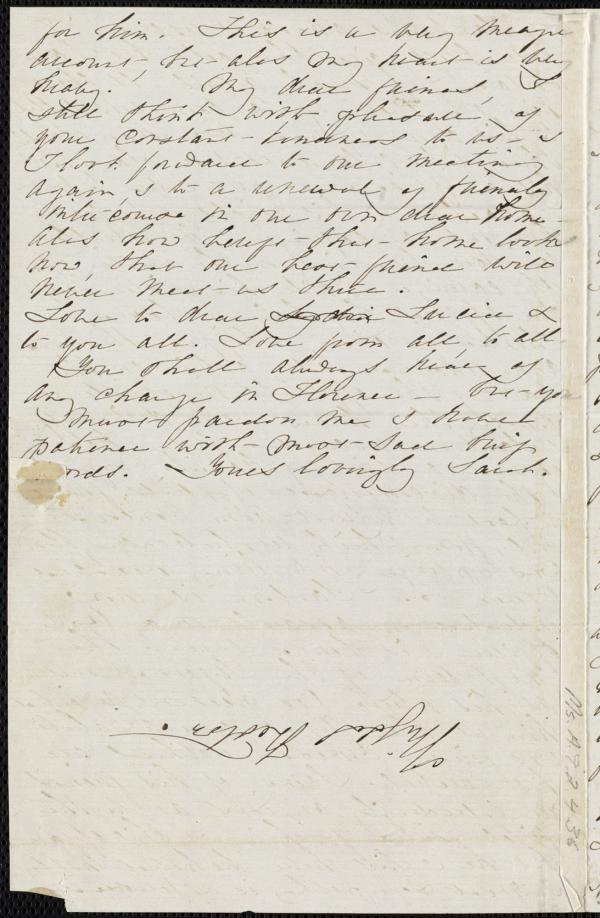 for him. This is a very meagre
account, but alas my heart is very
heavy. My dear friends, I
still think with pleasure of
your constant kindness to us &
I look forward to our meeting
again, & to a renewal of friendly
intercourse in our own dear home.
Alas how bereft that home looks
now, that our best friend will
never meet us there.
Love to dear Lucia &
to you all. Love from all, to all.
You shall always hear of
any change in Florence — but you
must pardon me & have
patience with most sad brief
words. Yours lovingly Sarah.
Ms. A.9.2.4.36